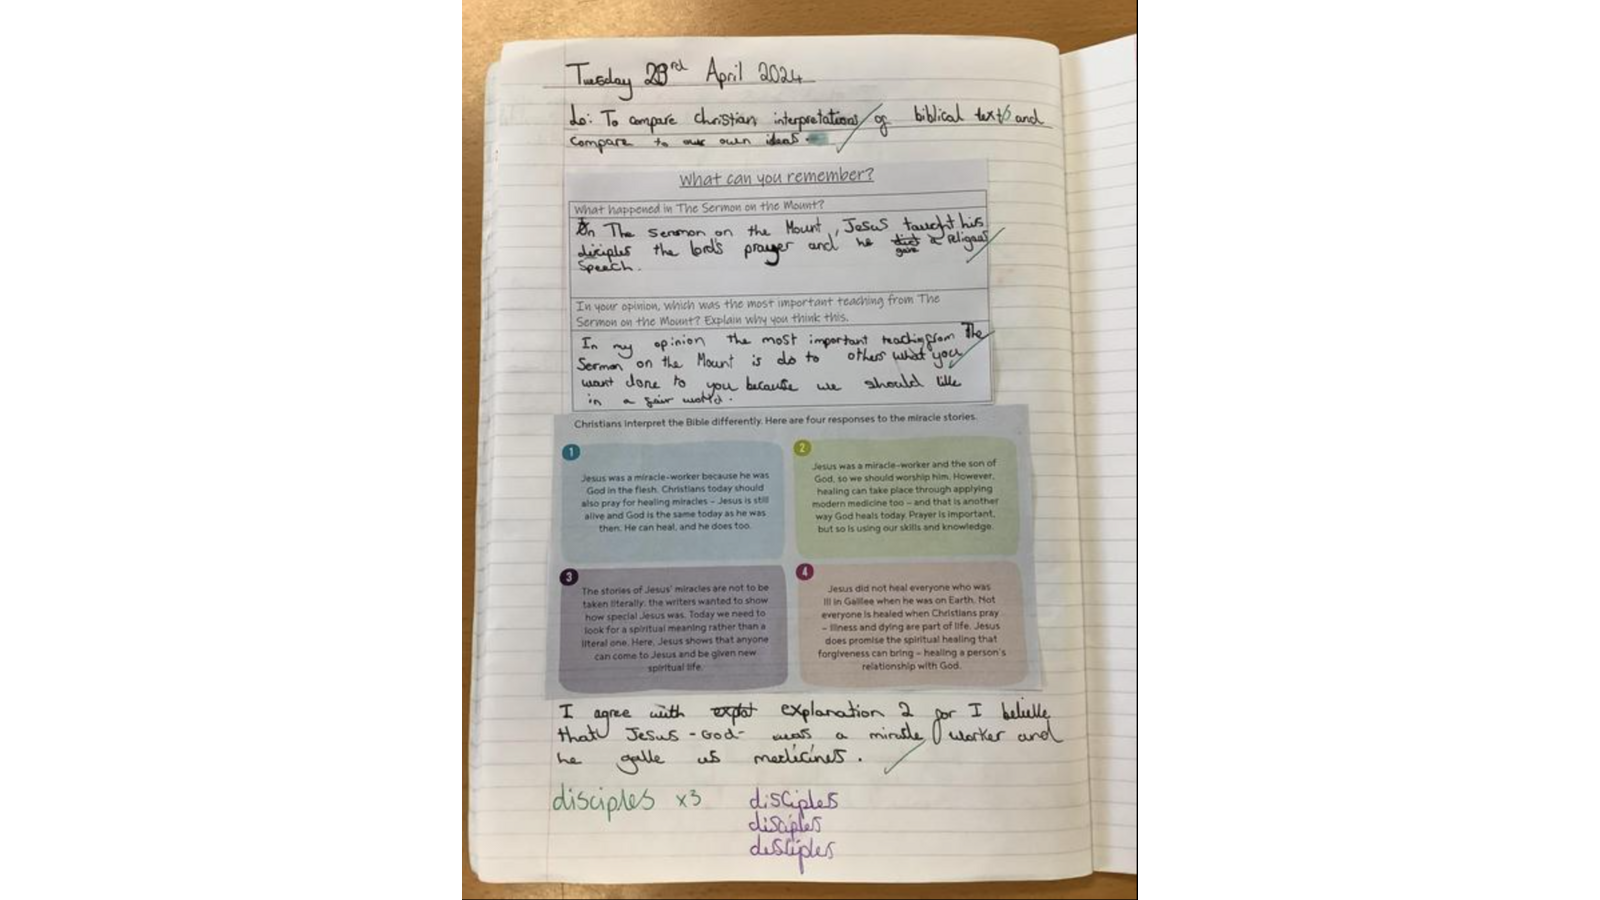 Tuesday 23rd April 2024
Lo: To compare Christian interpretations of biblical texts and
compare to our own ideas.
What can you remember?
What happened in The Sermon on the Mount?
In The sermon on the Mount, Jesus taught his
disciples the lord's prayer and he gave a religous
Speech.
In your opinion, which was the most important teaching from The
Sermon on the Mount? Explain why you think this.
In my opinion the most important teaching from The
Sermon on the Mount is do to others what you
want done to you because we should live
in a fair world.
Christians interpret the Bible differently. Here are four responses to the miracle stories.
1
Jesus was a miracle-worker because he was
God in the flesh. Christians today should
also pray for healing miracles – Jesus is still
alive and God is the same today as he was
then. He can heal, and he does too.
2
Jesus was a miracle-worker and the son of
God, so we should worship him. However,
healing can take place through applying
modern medicine too – and that is another
way God heals today. Prayer is important,
but so is using our skills and knowledge.
3
The stories of Jesus' miracles are not to be
taken literally: the writers wanted to show
how special Jesus was. Today we need to
look for a spiritual meaning rather than a
literal one. Here, Jesus shows that anyone
can come to Jesus and be given new
spiritual life.
4
Jesus did not heal everyone who was
ill in Galilee when he was on Earth. Not
everyone is healed when Christians pray
– illness and dying are part of life. Jesus
does promise the spiritual healing that
forgiveness can bring – healing a person's
relationship with God.
I agree with explanation 2 for I
that Jesus -God- was a miracle worker and
he us medicines.
disciples x3 disciples
disciples
disciples